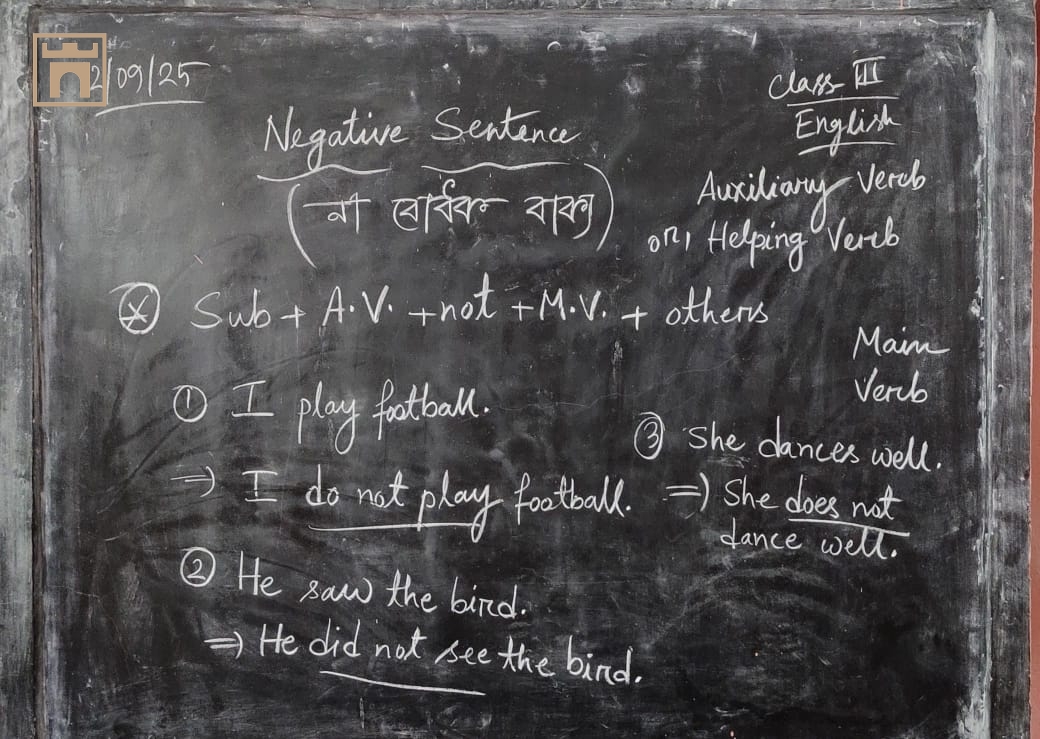 2/09/25
Class III
English
Negative Sentence
(না বোধক বাক্য)
Auxiliary Verb
or, Helping Verb
Sub + A.V. + not + M.V. + others
Main
Verb
① I play football.
⇒ I do not play football.
② He saw the bird.
⇒ He did not see the bird.
③ She dances well.
⇒ She does not
dance well.